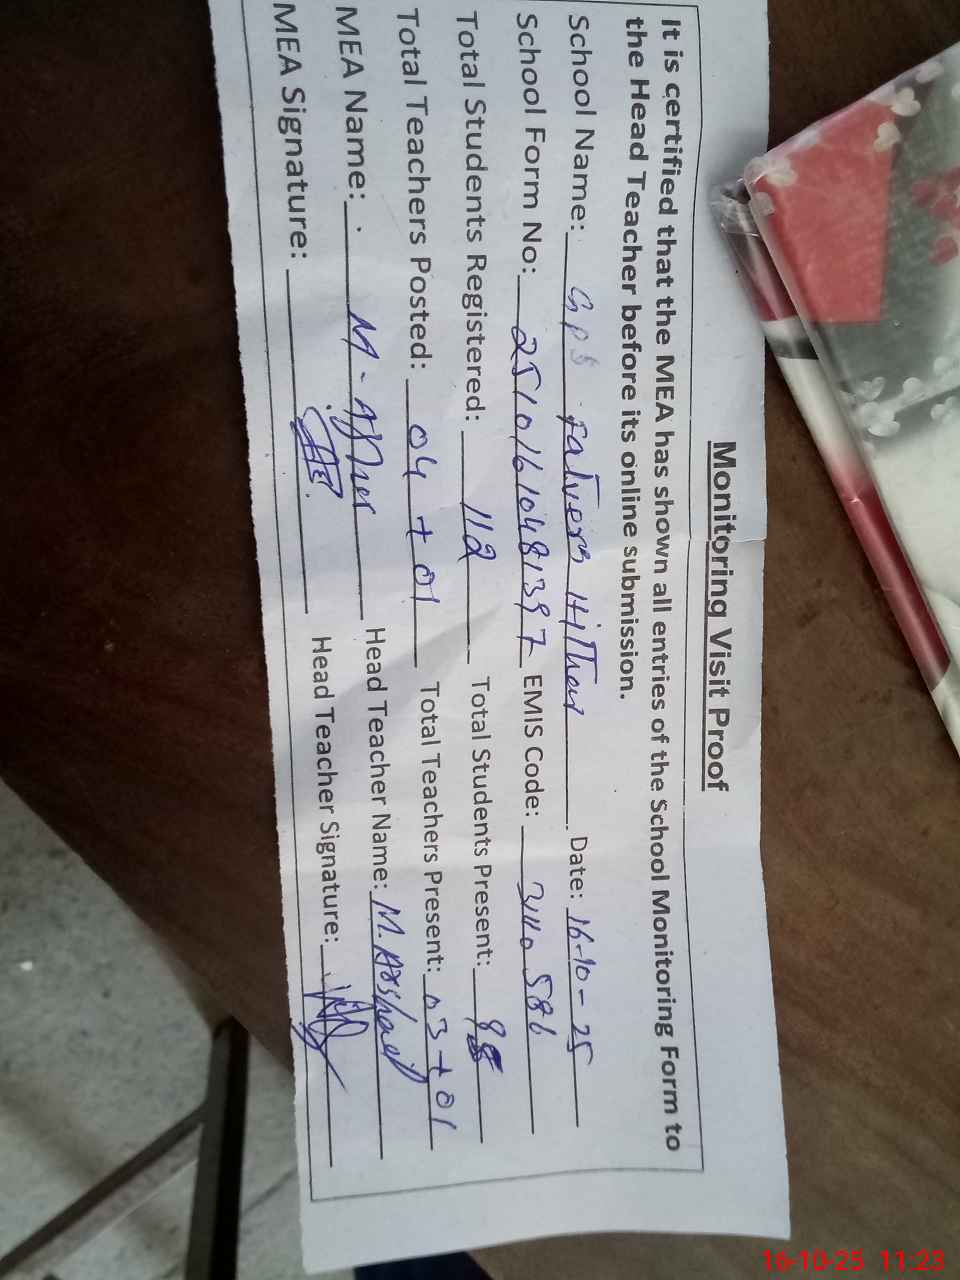 Monitoring Visit Proof
It is certified that the MEA has shown all entries of the School Monitoring Form to
the Head Teacher before its online submission.
School Name: GPS Date: 16-10-25
School Form No: 25101610481397 EMIS Code: 31110586
Total Students Registered: 112 Total Students Present:
Total Teachers Posted: 04 + 01 Total Teachers Present: 03 + 01
MEA Name: M. Head Teacher Name: M. Arshad
MEA Signature: Head Teacher Signature:
16-10-25 11:23